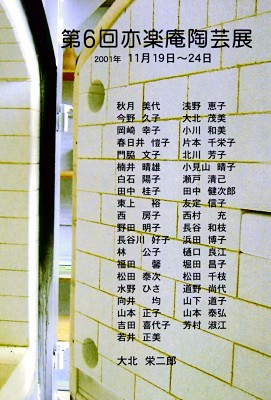 第6回亦楽庵陶芸展
2001年 11月19日～24日
秋月 美代 浅野 恵子
今野 久子 大北 茂美
岡崎 幸子 小川 和美
春日井 愷子 片本 千栄子
門脇 文子 北川 芳子
楠井 晴雄 小見山 晴子
白石 陽子 瀬戸 清己
田中 桂子 田中 健次郎
東上 裕 友定 信子
西 房子 西村 充
野田 明子 長谷 和枝
長谷川 好子 浜田 博子
林 公子 樋口 良江
福田 馨 堀田 昌子
松田 泰次 松田 千枝
水野 ひさ 道野 尚代
向井 均 山下 道子
山本 正子 山本 泰弘
吉田 喜代子 芳村 淑江
若井 正美
大北 栄二郎